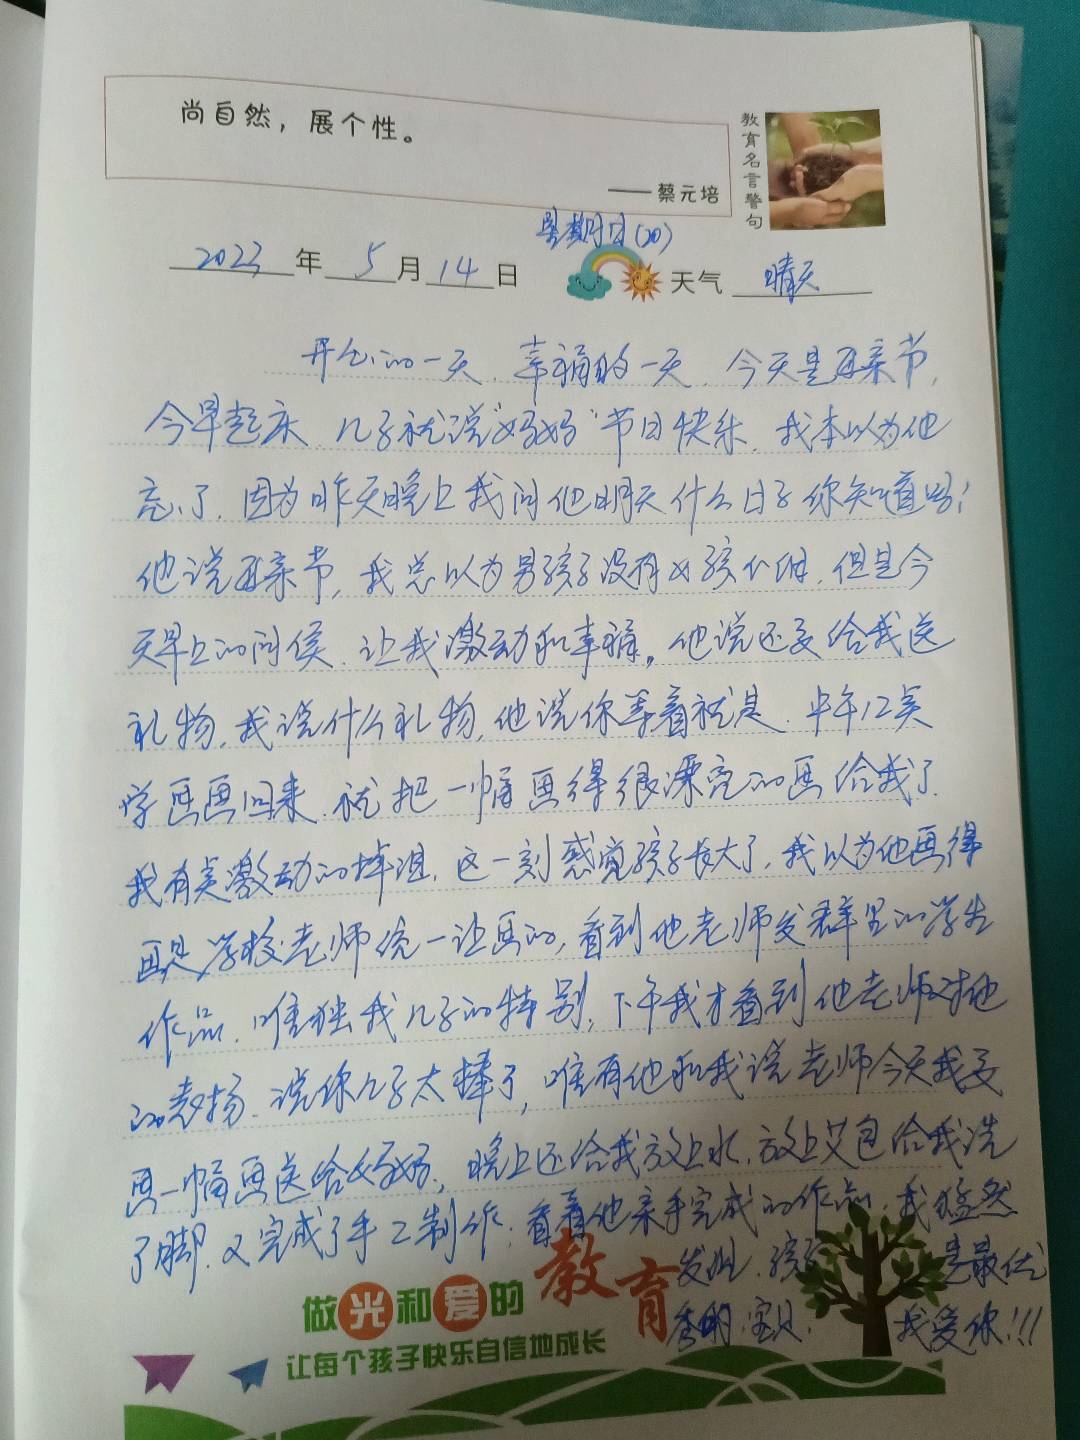 尚自然，展个性。
——蔡元培
教育名言警句
星期日(20)
2023年5月14日 天气 晴天
开心的一天、幸福的一天、今天是母亲节,
今早起床、儿子就说“妈妈”节日快乐、我本以为他
忘了、因为昨天晚上我问他明天什么日子你知道吗?
他说母亲节, 我总以为男孩子没有女孩仔细、但是今
天早上的问侯、让我激动和幸福。他说还要给我送
礼物, 我说什么礼物, 他说你等着就是、中午12点
学画画回来、就把一幅画得很漂亮的画给我了、
我有点激动的掉泪、这一刻感觉孩子长大了, 我以为他画得
画是学校老师统一让画的, 看到他老师发群里的学生
作品、唯独我儿子的特别, 下午我才看到他老师对他
的表扬、说你儿子太棒了, 唯有他和我说老师今天我要
画一幅画送给妈妈, 晚上还给我放上水、放上艾包给我洗
了脚、又完成了手工制作; 看着他亲手完成的作品、我猛然
发现、孩子 是最优
秀的、宝贝、 我爱你!!!
做光和爱的教育
让每个孩子快乐自信地成长